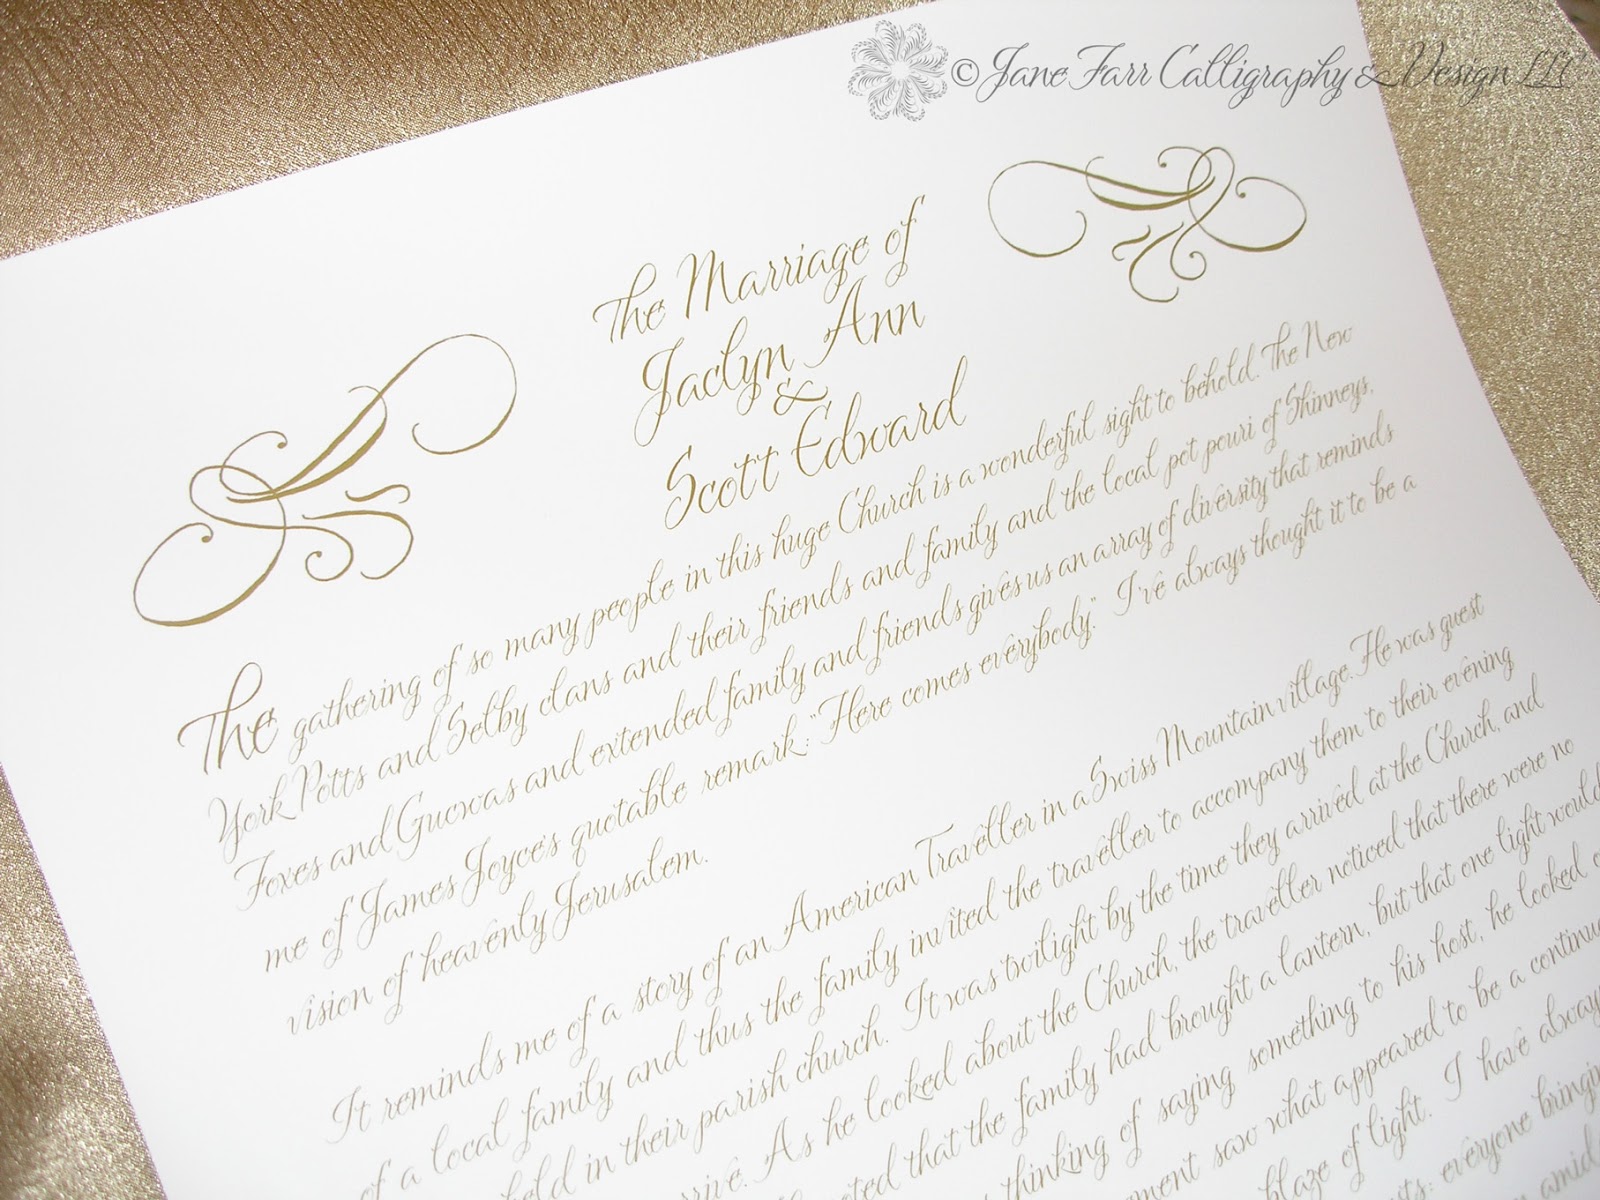 © Jane Farr Calligraphy & Design LLC
The Marriage of
Jaclyn Ann
&
Scott Edward
The gathering of so many people in this huge Church is a wonderful sight to behold. The New
York Potts and Selby clans and their friends and family and the local pot pouri of Shinneys,
Foxes and Gucwas and extended family and friends gives us an array of diversity that reminds
me of James Joyce's quotable remark: "Here comes everybody." I've always thought it to be a
vision of heavenly Jerusalem.
It reminds me of a story of an American Traveller in a Swiss Mountain village. He was guest
of a local family and thus the family invited the traveller to accompany them to their evening
held in their parish church. It was twilight by the time they arrived at the Church, and
rive. As he looked about the Church, the traveller noticed that there were no
oted that the family had brought a lantern, but that one light would
thinking of saying something to his host, he looked
ement saw what appeared to be a continu
blaze of light. I have always
ts: everyone bringin
amid